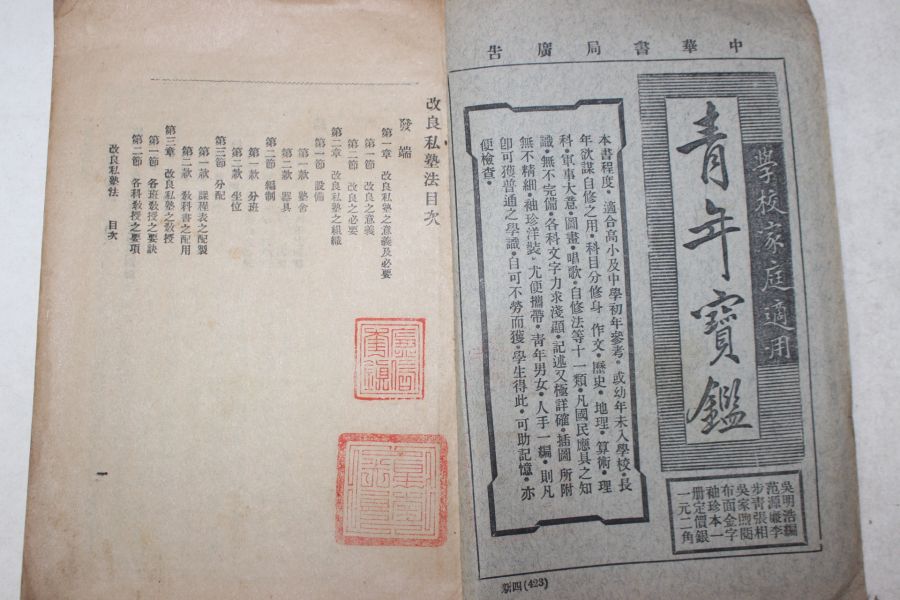 中華書局廣告
學校家庭適用
青年寶鑑
本書程度•適合高小及中學初年參考•或幼年未入學校•長
年欲謀自修之用•科目分修身 作文•歷史•地理•算術•理
科•軍事大意•圖畫•唱歌•自修法等十一類•凡國民應具之知
識•無不完備•各科文字力求淺顯•記述又極詳確•插圖 所附
無不精細•袖珍洋裝•尤便攜帶•青年男女•人手一編•則凡
卽可獲普通之學識•自可不勞而獲•學生得此•可助記憶•亦
便檢查•
吳明浩編
范源廉李
步青張相
吳家煦閱
布面金字
袖珍本一
册定價銀
一元二角
新四(423)
改良私塾法目次
發端
第一章 改良私塾之意義及必要
第一節 改良之意義
第二節 改良之必要
第二章 改良私塾之組織
第一節 設備
第一款 塾舍
第二款 器具
第二節 編制
第一款 分班
第二款 坐位
第三節 分配
第一款 課程表之配製
第二款 敎科書之配用
第三章 改良私塾之敎授
第一節 各班敎授之要訣
第二節 各科敎授之要項
改良私塾法 目次
一